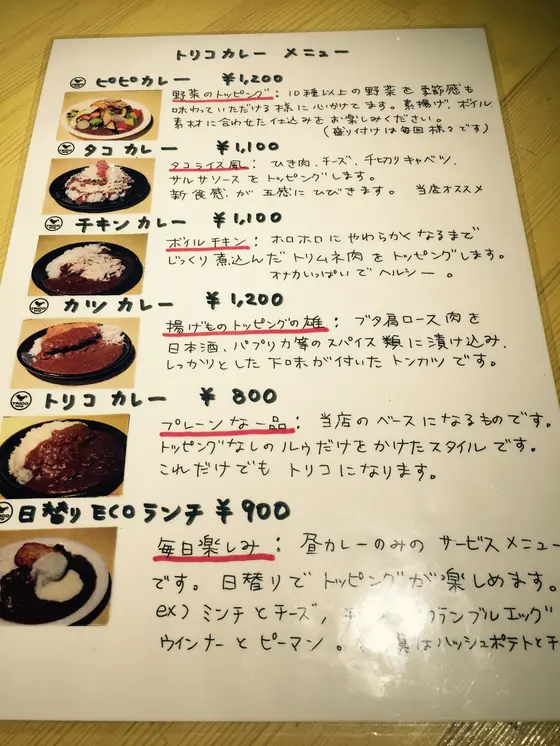 トリコカレー メニュー
ピピカレー ¥1,200
野菜のトッピング: 10種以上の野菜を季節感も
味わっていただける様に心がけてます。素揚げ、ボイル
素材に合わせた仕込みをお楽しみください。
(盛り付けは毎回様々です)
タコ カレー ¥1,100
タコライス風: ひき肉、チーズ、千切りキャベツ、
サルサソースをトッピングします。
新食感、が五感にひびきます。 当店オススメ
チキンカレー ¥1,100
ボイルチキン: ホロホロにやわらかくなるまで
じっくり煮込んだトリムネ肉をトッピングします。
オナカいっぱいでヘルシー。
カツカレー ¥1,200
揚げものトッピングの雄: ブタ肩ロース肉を
日本酒、パプリカ等のスパイス類に漬け込み、
しっかりとした下味が付いたトンカツです。
トリコ カレー ¥800
プレーンな一品: 当店のベースになるものです。
トッピングなしのルゥだけをかけたスタイルです。
これだけでも トリコになります。
日替りECOランチ ¥900
毎日楽しみ: 昼カレーのみのサービスメニュー
です。日替りでトッピングが楽しめます。
ex) ミンチとチーズ, ランブルエッグ
ウインナーとピーマン。 真はハッシュポテトとチ